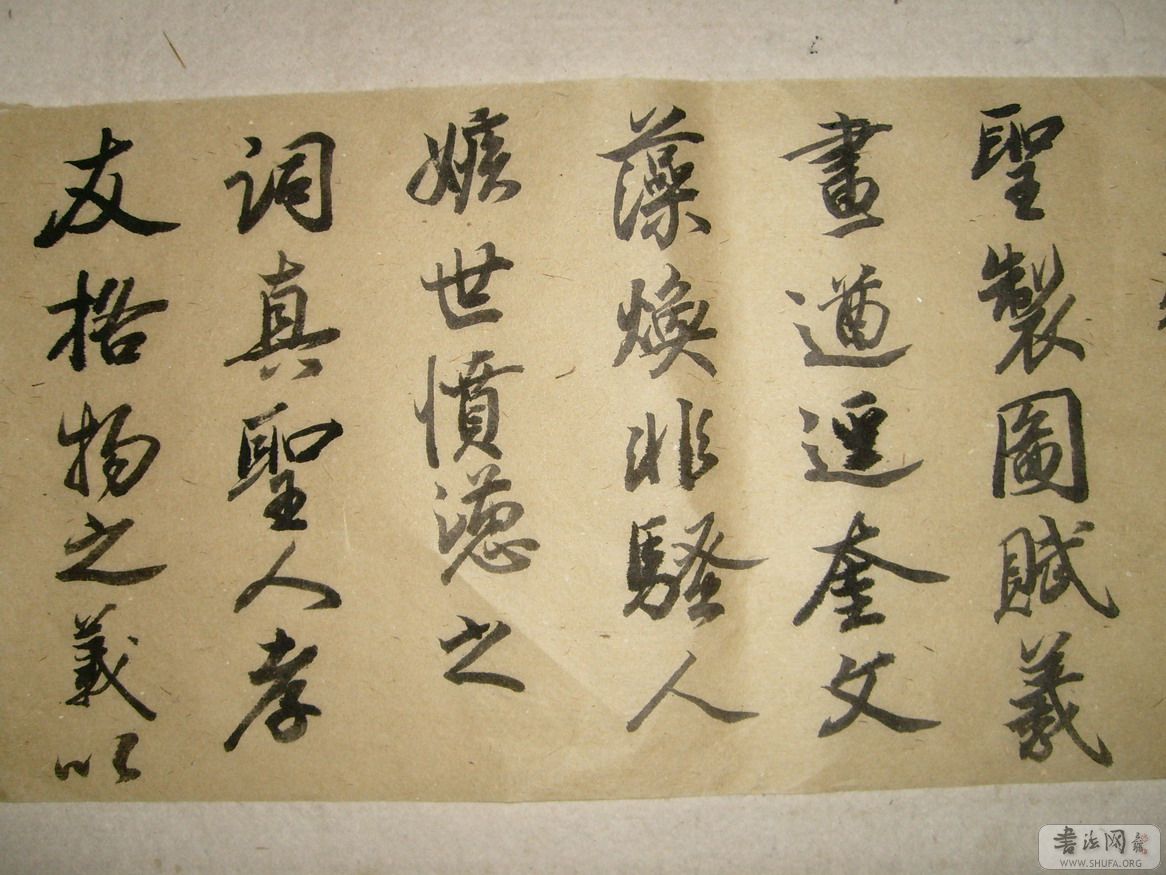 聖製圖賦羲
畫遒逕奎文
藻煥非騷人
嫉世憤懣之
詞真聖人孝
友格物之義以
書法网
WWW.SHUFA.ORG